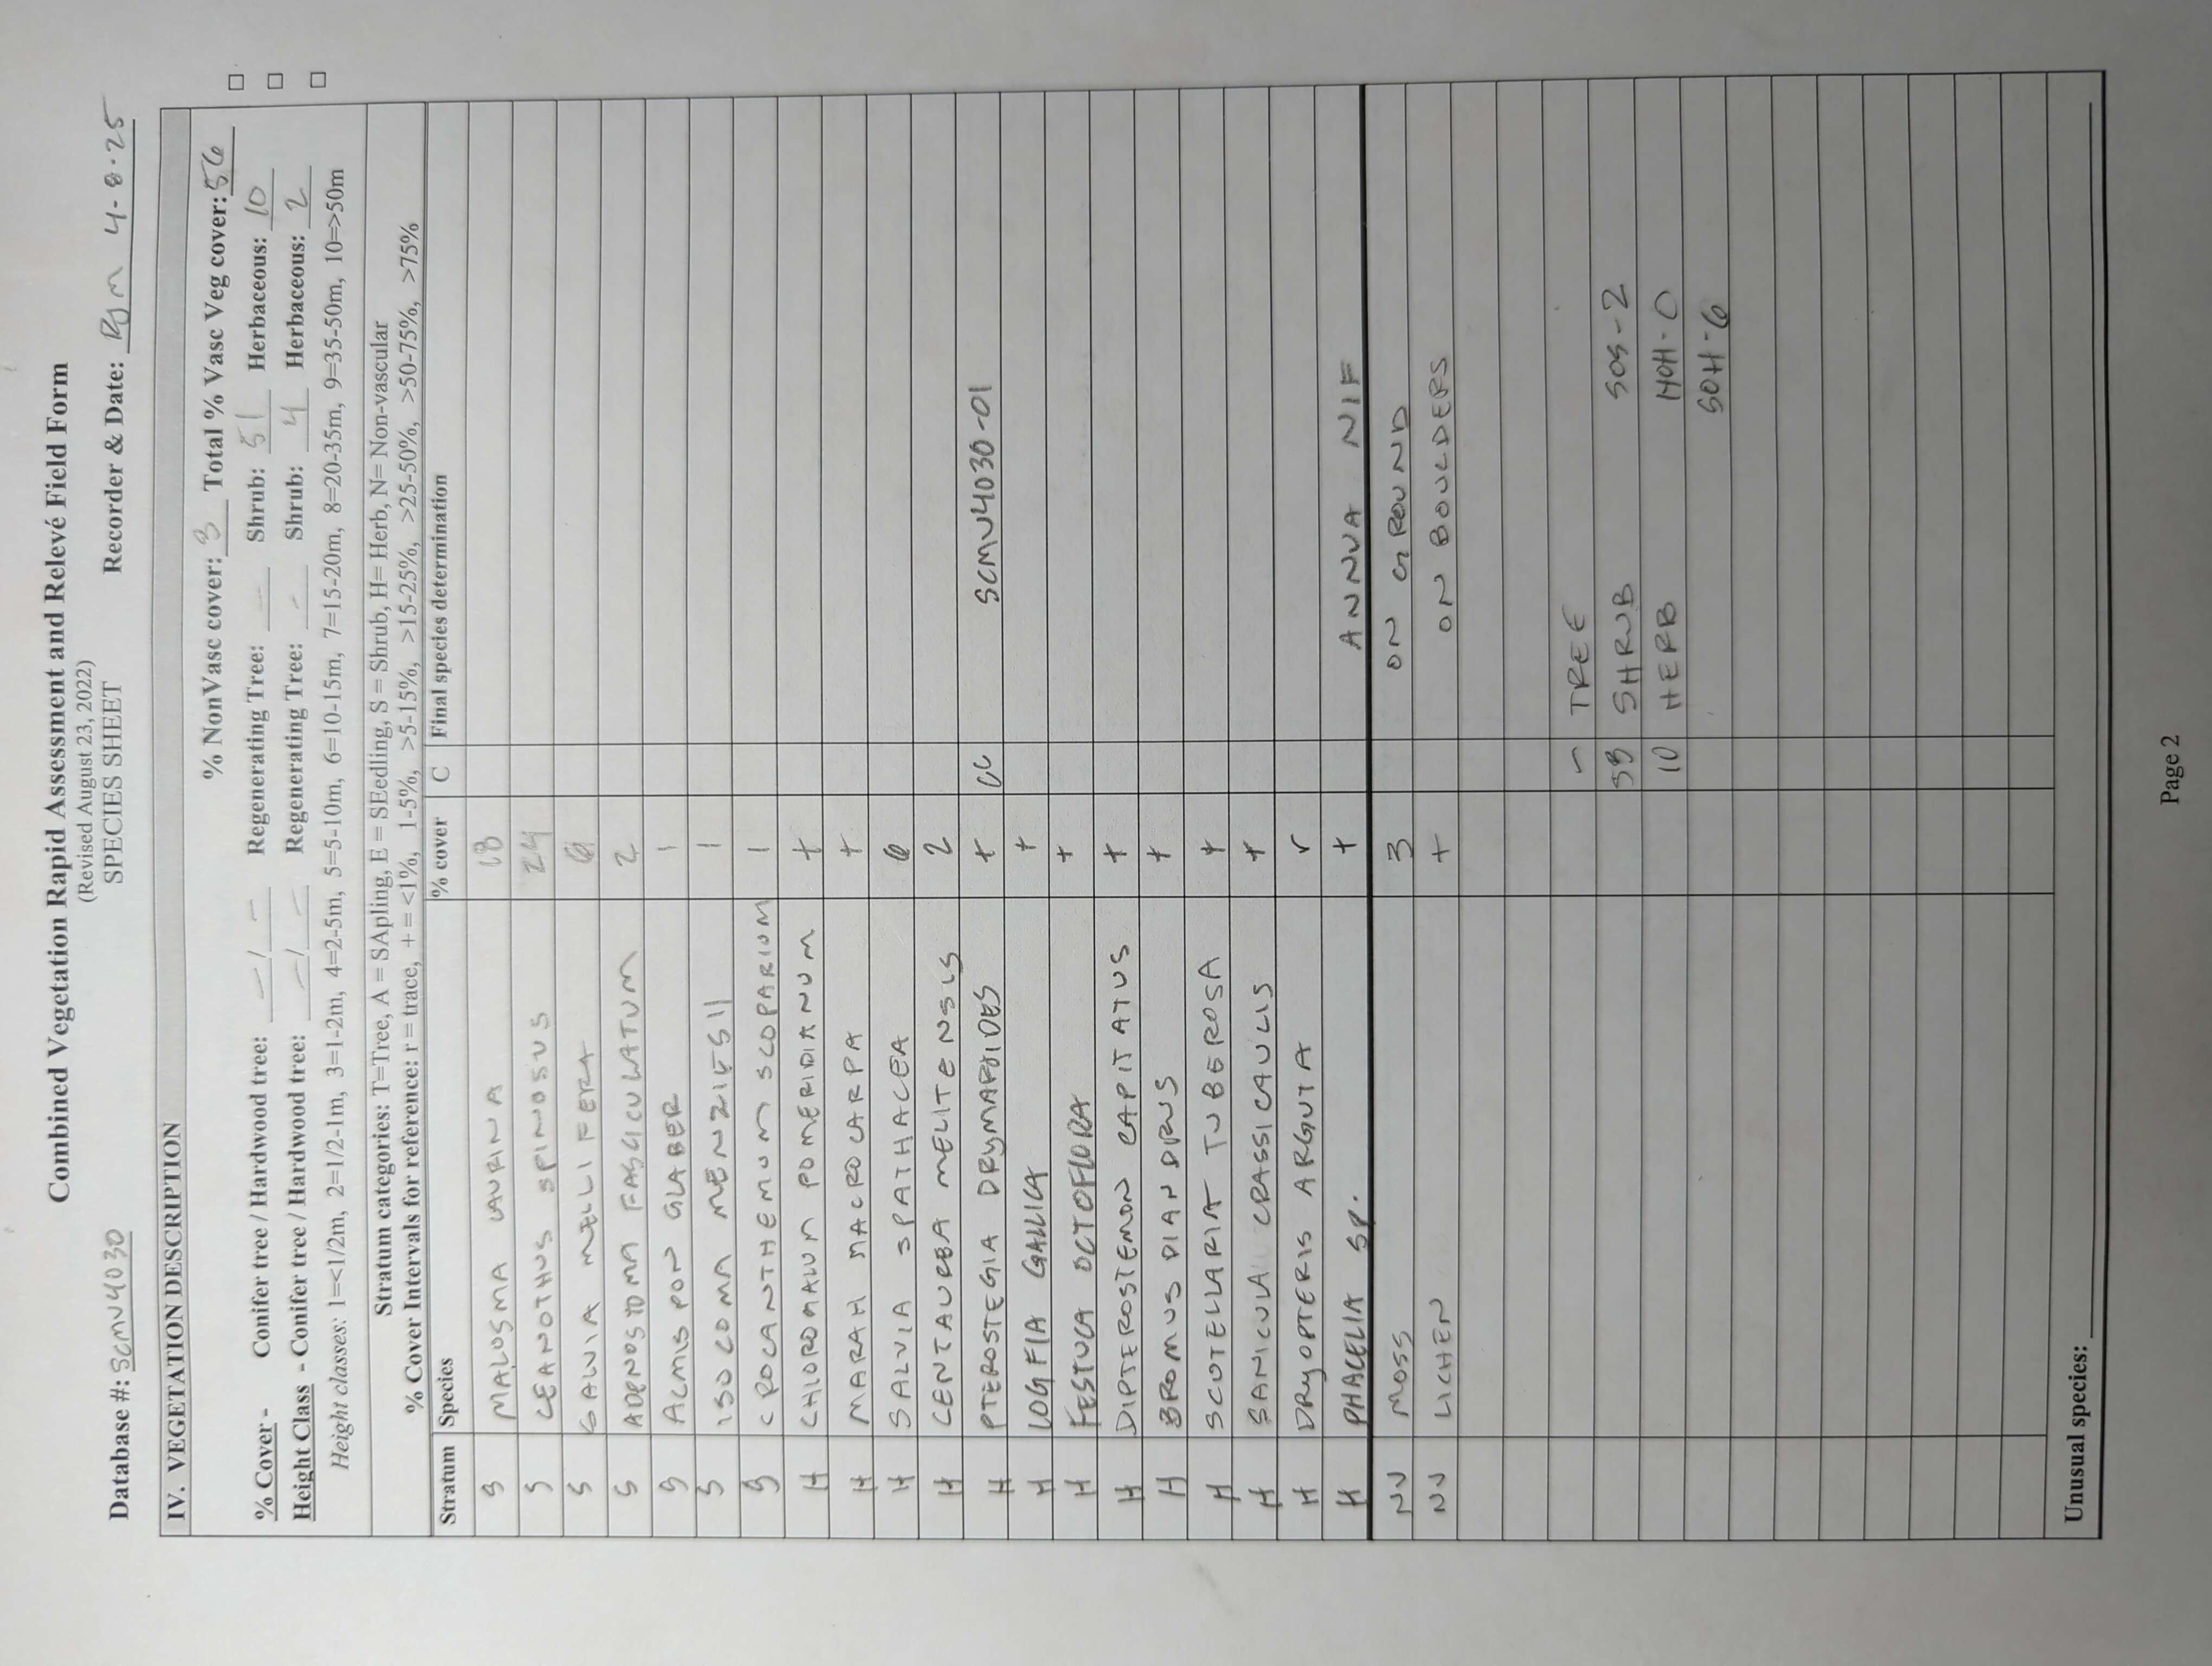 Combined Vegetation Rapid Assessment and Relevé Field Form
(Revised August 23, 2022)
SPECIES SHEET
Database #: SCMV4030 Recorder & Date: RJM 4-8-25
IV. VEGETATION DESCRIPTION
% NonVasc cover: 3 Total % Vasc Veg cover: 56
% Cover - Conifer tree / Hardwood tree: - / - Regenerating Tree: - Shrub: 51 Herbaceous: 10
Height Class - Conifer tree / Hardwood tree: - / - Regenerating Tree: - Shrub: 4 Herbaceous: 2
Height classes: 1=<1/2m, 2=1/2-1m, 3=1-2m, 4=2-5m, 5=5-10m, 6=10-15m, 7=15-20m, 8=20-35m, 9=35-50m, 10=>50m
Stratum categories: T=Tree, A = SApling, E = SEedling, S = Shrub, H= Herb, N= Non-vascular
% Cover Intervals for reference: r = trace, + = <1%, 1-5%, >5-15%, >15-25%, >25-50%, >50-75%, >75%
Stratum Species % cover C Final species determination
S MALOSMA LAURINA 18
S CEANOTHUS SPINOSUS 24
S SALVIA MELLIFERA 6
S ADENOSTOMA FASCICULATUM 2
S ACMISPON GLABER 1
S ISOCOMA MENZIESII 1
S CROCANTHEMUM SCOPARIUM 1
H CHLOROGALUM POMERIDIANUM +
H MARAH MACROCARPA +
H SALVIA SPATHACEA 6
H CENTAUREA MELITENSIS 2
H PTEROSTEGIA DRYMARIOIDES + CC SCMV4030-01
H LOGFIA GALLICA +
H FESTUCA OCTOFLORA +
H DIPTEROSTEMON CAPITATUS +
H BROMUS DIANDRUS +
H SCUTELLARIA TUBEROSA +
H SANICULA CRASSICAULIS +
H DRYOPTERIS ARGUTA r
H PHACELIA SP. + ANNUA NIF
NV MOSS 3 ON GROUND
NV LICHEN + ON BOULDERS
- TREE
53 SHRUB SOS-2
10 HERB HOH-0
SOH-6
Unusual species:
Page 2